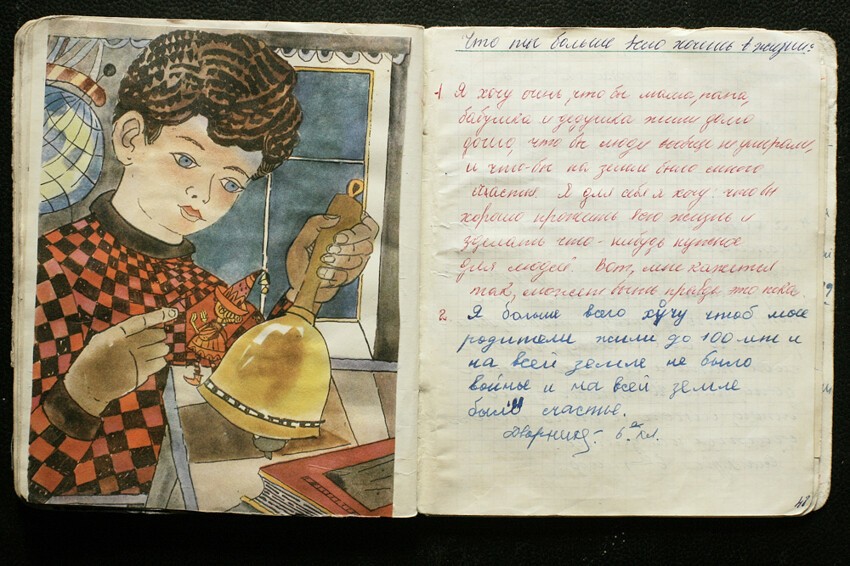 Что ты больше всего хочешь в жизни?
1. Я хочу очень, что бы мама, папа,
бабушка и дедушка жили долго
долго, что бы люди вообще не умирали,
и что-бы на земле было много
счастья. Я для себя я хочу: что бы
хорошо прожить всю жизнь и
зделать что-нибудь нужное
для людей. Вот, мне кажется
так, может быть правда это пока.
2. Я больше всего хочу чтоб мое
родители жили до 100 лет и
на всей земле не было
войны и на всей земле
были счастье.
6 кл.
48